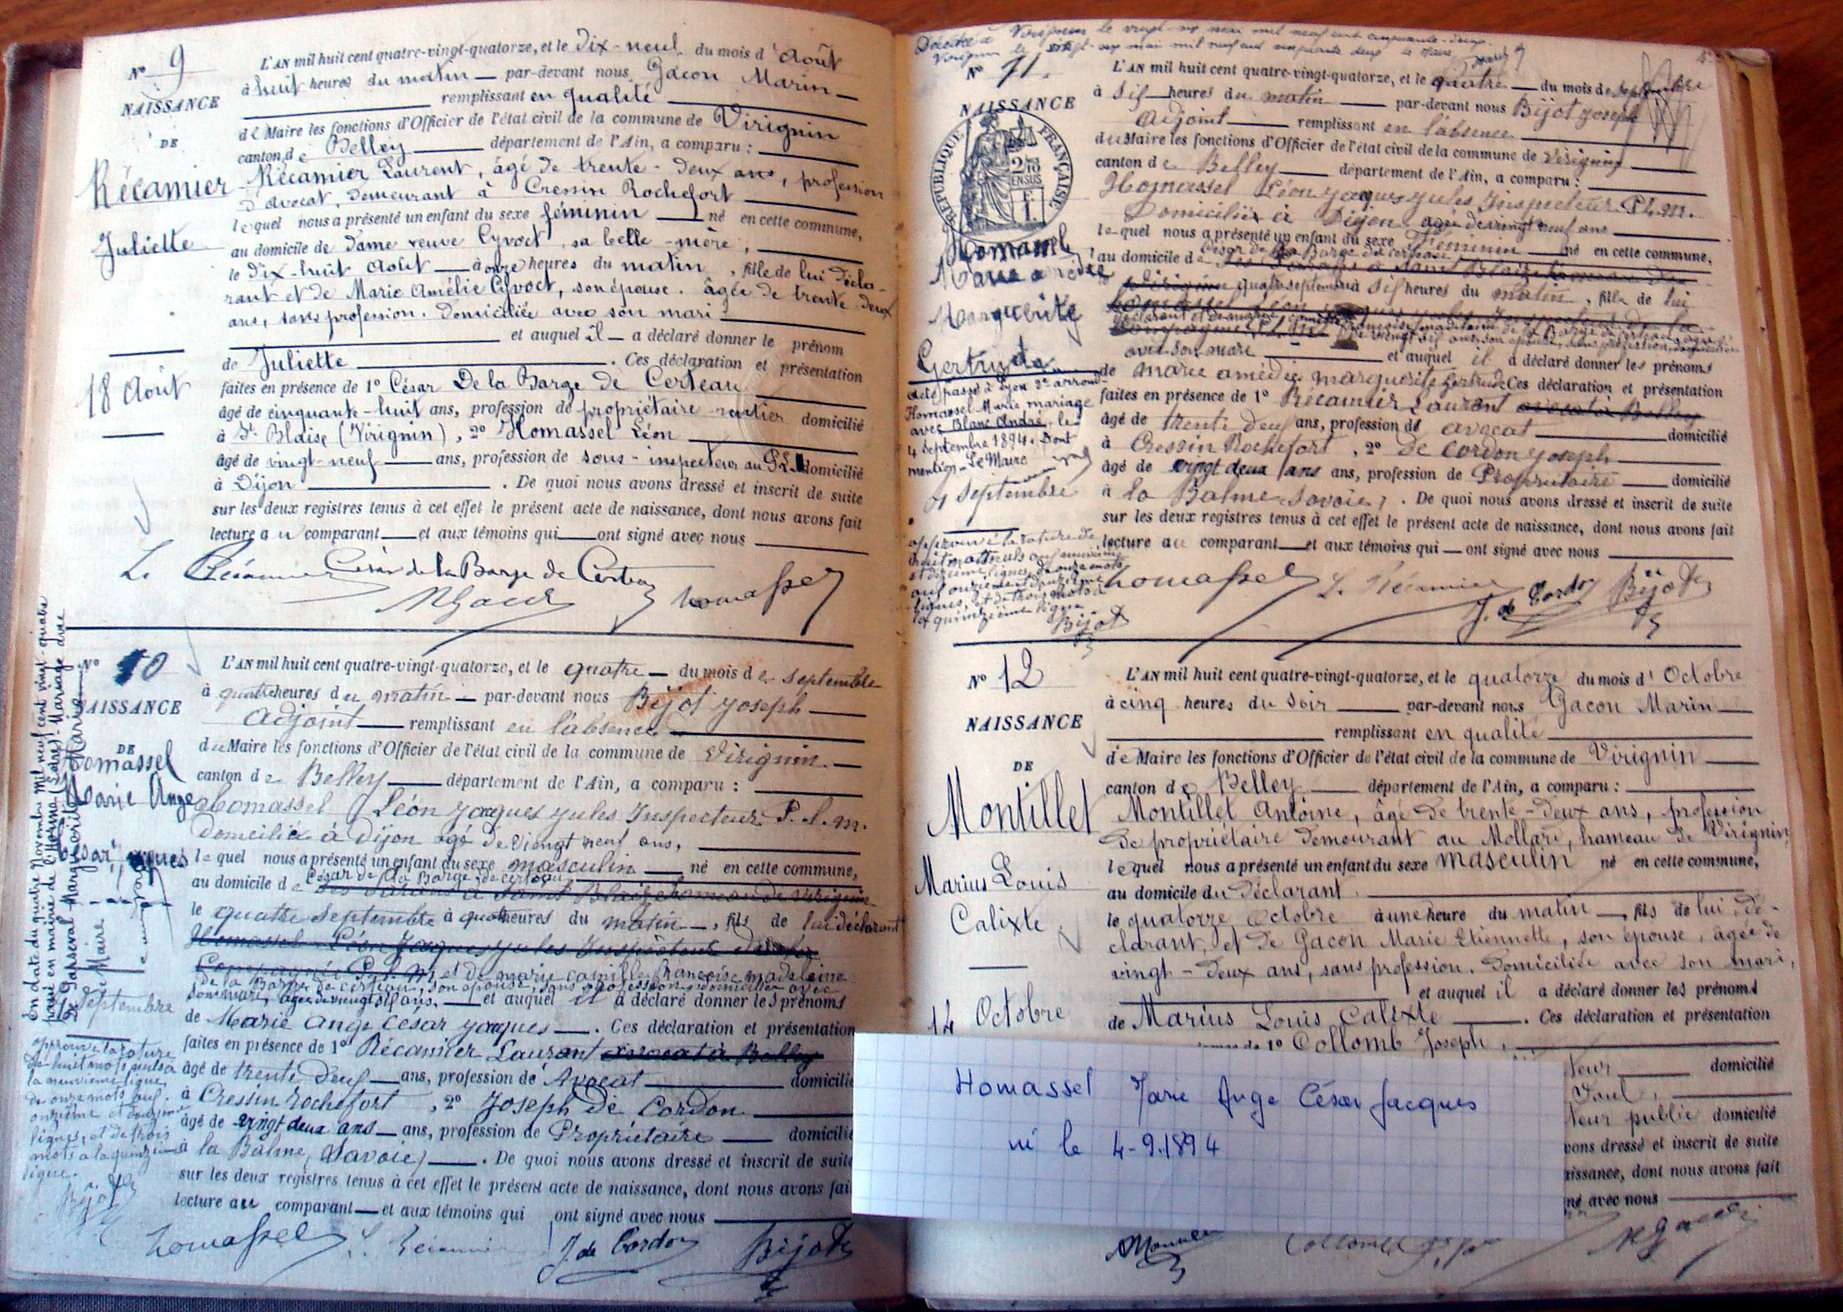 N° 9
NAISSANCE
DE
Récamier
Juliette
18 Août
L'AN mil huit cent quatre-vingt-quatorze, et le dix-neuf du mois d'Août
à huit heures du matin par-devant nous Gacon Marin
remplissant en qualité
de Maire les fonctions d'Officier de l'état civil de la commune de Virignin
canton de Belley département de l'Ain, a comparu :
Récamier Laurent, âgé de trente-deux ans, profession
d'avocat, demeurant à Cressin Rochefort
lequel nous a présenté un enfant du sexe féminin né en cette commune,
au domicile de Dame veuve Cyvoct, sa belle-mère,
le dix-huit Août à onze heures du matin, fille de lui décla-
rant et de Marie Amélie Cyvoct, son épouse. âgée de trente deux
ans, sans profession. Domiciliée avec son mari
et auquel il a déclaré donner le prénom
de Juliette . Ces déclaration et présentation
faites en présence de 1° César De la Barge de Certeau
âgé de cinquante-huit ans, profession de propriétaire-rentier domicilié
à St Blaise (Virignin), 2° Homassel Léon
âgé de vingt-neuf ans, profession de sous-inspecteur au P.L. domicilié
à Dijon . De quoi nous avons dressé et inscrit de suite
sur les deux registres tenus à cet effet le présent acte de naissance, dont nous avons fait
lecture au comparant et aux témoins qui ont signé avec nous
L. Récamier César de la Barge de Certeau
MGacon Homassel
N° 10
NAISSANCE
DE
Homassel
Marie Ange
César, Jacques
Septembre
En date du quatre Novembre Mil neuf cent vingt quatre
L'AN mil huit cent quatre-vingt-quatorze, et le quatre du mois de septembre
à quatre heures du matin par-devant nous Bijot Joseph
Adjoint remplissant en l'absence
du Maire les fonctions d'Officier de l'état civil de la commune de Virignin
canton de Belley département de l'Ain, a comparu :
Homassel Léon Jacques Jules Inspecteur P.L.M.
domicilié à Dijon agé de vingt neuf ans,
lequel nous a présenté un enfant du sexe masculin né en cette commune,
au domicile de César de la Barge de Certeau
le quatre septembre à quatre heures du matin, fils de lui déclarant
Homassel Léon Jacques Jules Inspecteur de la
Compagnie P.L.M, et de marie camille françoise madeleine
de la Barge de certeau, son épouse, sans profession domiciliée avec
son mari, âgée de vingt six ans. et auquel il a déclaré donner les prénoms
de Marie Ange César Jacques . Ces déclaration et présentation
faites en présence de 1° Récamier Laurent avocat à Belley
âgé de trente deux ans, profession de Avocat domicilié
à Cressin Rochefort, 2° Joseph De Cordon
âgé de vingt deux ans ans, profession de Propriétaire domicilié
à la Balme (Savoie) . De quoi nous avons dressé et inscrit de suite
sur les deux registres tenus à cet effet le présent acte de naissance, dont nous avons fait
lecture au comparant et aux témoins qui ont signé avec nous
approuvé la rature
de huit mots nuls à
la neuvième ligne
de onze mots aux
onzième et douzième
lignes, et de trois
mots à la quinzième
ligne.
Bijot
Homassel L. Récamier J. de Cordon Bijot
N° 11
NAISSANCE
RÉPUBLIQUE FRANÇAISE
Homassel
Marie amédée
Marguerite
Gertrude
acte passé à Lyon 2e arrond
Homassel Marie mariage
avec Blanc André, le
4 septembre 1894. Dont
mention - Le Maire
4 septembre
L'AN mil huit cent quatre-vingt-quatorze, et le quatre du mois de septembre
à six heures du matin par-devant nous Bijot Joseph
Adjoint remplissant en l'absence
du Maire les fonctions d'Officier de l'état civil de la commune de Virignin
canton de Belley département de l'Ain, a comparu :
Homassel Léon Jacques Jules Inspecteur P.L.M.
Domicilié à Dijon agé de vingt neuf ans
lequel nous a présenté un enfant du sexe féminin né en cette commune,
au domicile de César de la Barge de Certeau
Virignin quatre septembre à six heures du matin, fille de lui
avec son mari et auquel il a déclaré donner les prénoms
de marie amédée marguerite gertrude Ces déclaration et présentation
faites en présence de 1° Récamier Laurent avocat à Belley
âgé de trente deux ans, profession de avocat domicilié
à Cressin Rochefort, 2° de Cordon Joseph
âgé de vingt deux ans ans, profession de Propriétaire domicilié
à la Balme (Savoie) . De quoi nous avons dressé et inscrit de suite
sur les deux registres tenus à cet effet le présent acte de naissance, dont nous avons fait
lecture au comparant et aux témoins qui ont signé avec nous
Bijot
Homassel L. Récamier J. de Cordon Bijot
N° 12
NAISSANCE
DE
Montillet
Marius Louis
Calixte
14 Octobre
L'AN mil huit cent quatre-vingt-quatorze, et le quatorze du mois d'Octobre
à cinq heures du soir par-devant nous Gacon Marin
remplissant en qualité
de Maire les fonctions d'Officier de l'état civil de la commune de Virignin
canton de Belley département de l'Ain, a comparu :
Montillet Antoine, âgé de trente-deux ans, profession
de propriétaire demeurant au Mollard, hameau de Virignin,
lequel nous a présenté un enfant du sexe masculin né en cette commune,
au domicile du Déclarant
le quatorze Octobre à une heure du matin, fils de lui dé-
clarant, et de Gacon Marie Etiennette, son épouse, âgée de
vingt-deux ans, sans profession. Domiciliée avec son mari,
et auquel il a déclaré donner les prénoms
de Marius Louis Calixte . Ces déclaration et présentation
1° Collomb Joseph,
domicilié
Paul,
public domicilié
vons dressé et inscrit de suite
aissance, dont nous avons fait
né avec nous
Homassel Marie Ange César Jacques
né le 4-9.1894
Collomb MGacon